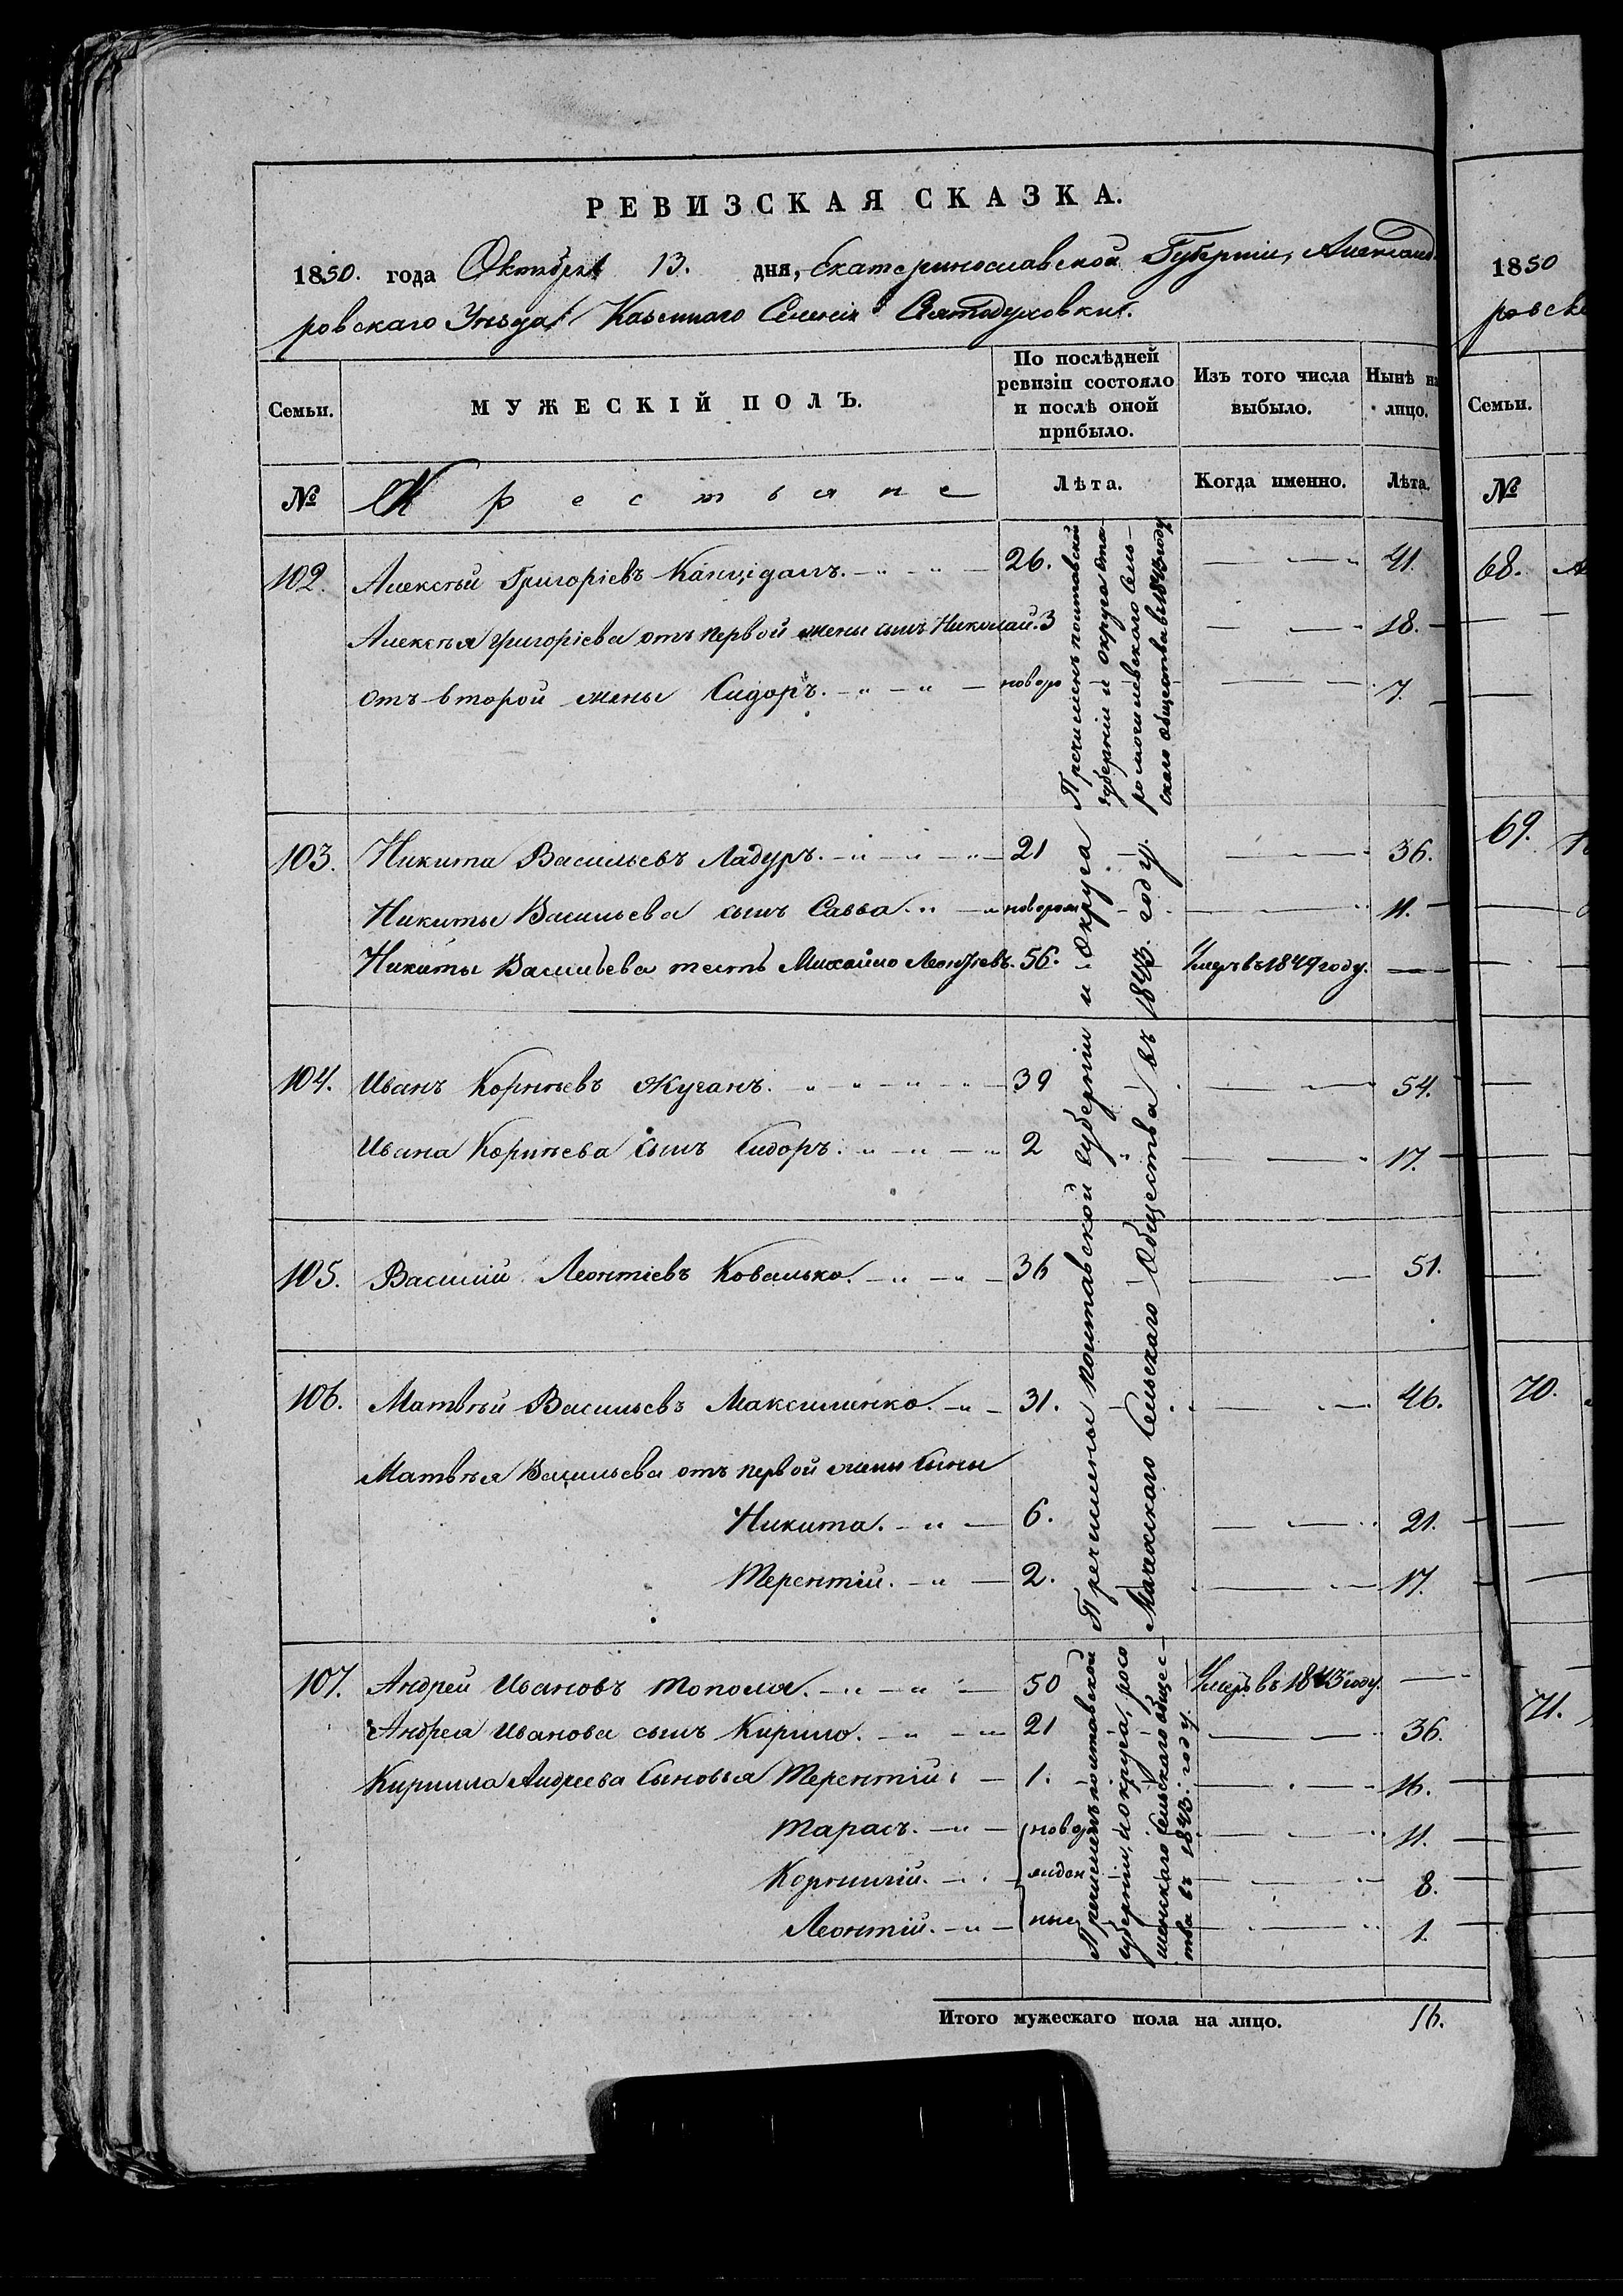 РЕВИЗСКАЯ СКАЗКА.
1850. года Октября 13. дня, Екатеринославской Губерніи, Александ-
ровскаго Уѣзда Казеннаго Селенія Святодуховки.
Семьи.
МУЖЕСКІЙ ПОЛЪ.
По послѣдней ревизіи состояло и послѣ оной прибыло.
Изъ того числа выбыло.
Нынѣ на лицо.
№
Крестьяне
Лѣта.
Когда именно.
Лѣта.
102. Алексѣй Григоріевъ 26. 41.
Алексѣя Григоріева отъ первой жены сынъ Николай. 3 18.
отъ второй жены Сидоръ. новоро 7.
Пречисленъ полтавской
губерніи и округа ста-
ромогилевского Сель-
скаго общества въ 1843 году
103. Никита Васильевъ Ладуръ. 21 36.
Никиты Васильева сынъ Савва. новорож 11.
Никиты Васильева тесть Михайло Леонтіевъ. 56. Умеръ въ 1849 году.
104. Иванъ Корнѣевъ Жуганъ. 39 54.
Ивана Корнѣева сынъ Сидоръ. 2 17.
105. Василій Леонтіевъ Ковалько. 36 51.
106. Матвѣй Васильевъ Максименко. 31. 46.
Матвѣя Васильева отъ первой жены сыны
Никита. 6. 21.
Терентій. 2. 17.
Пречислены полтавской губерніи и Округа
Мачехского Сельскаго Общества въ 1843. году.
107. Андрей Ивановъ Тополя. 50 Умеръ въ 1843 году.
Андрея Иванова сынъ Кирило. 21 36.
Кирилла Андреева сыновья Терентій 1. 16.
Тарасъ. новоро 11.
Корнилій. жден 8.
Леонтій. ные 1.
Пречисленъ полтавской
губерніи, и округа, росо
шенскаго Сельскаго общес-
тва въ 1843. году.
Итого мужескаго пола на лицо. 16.
1850
Семьи.
№
68.
69.
70.
71.